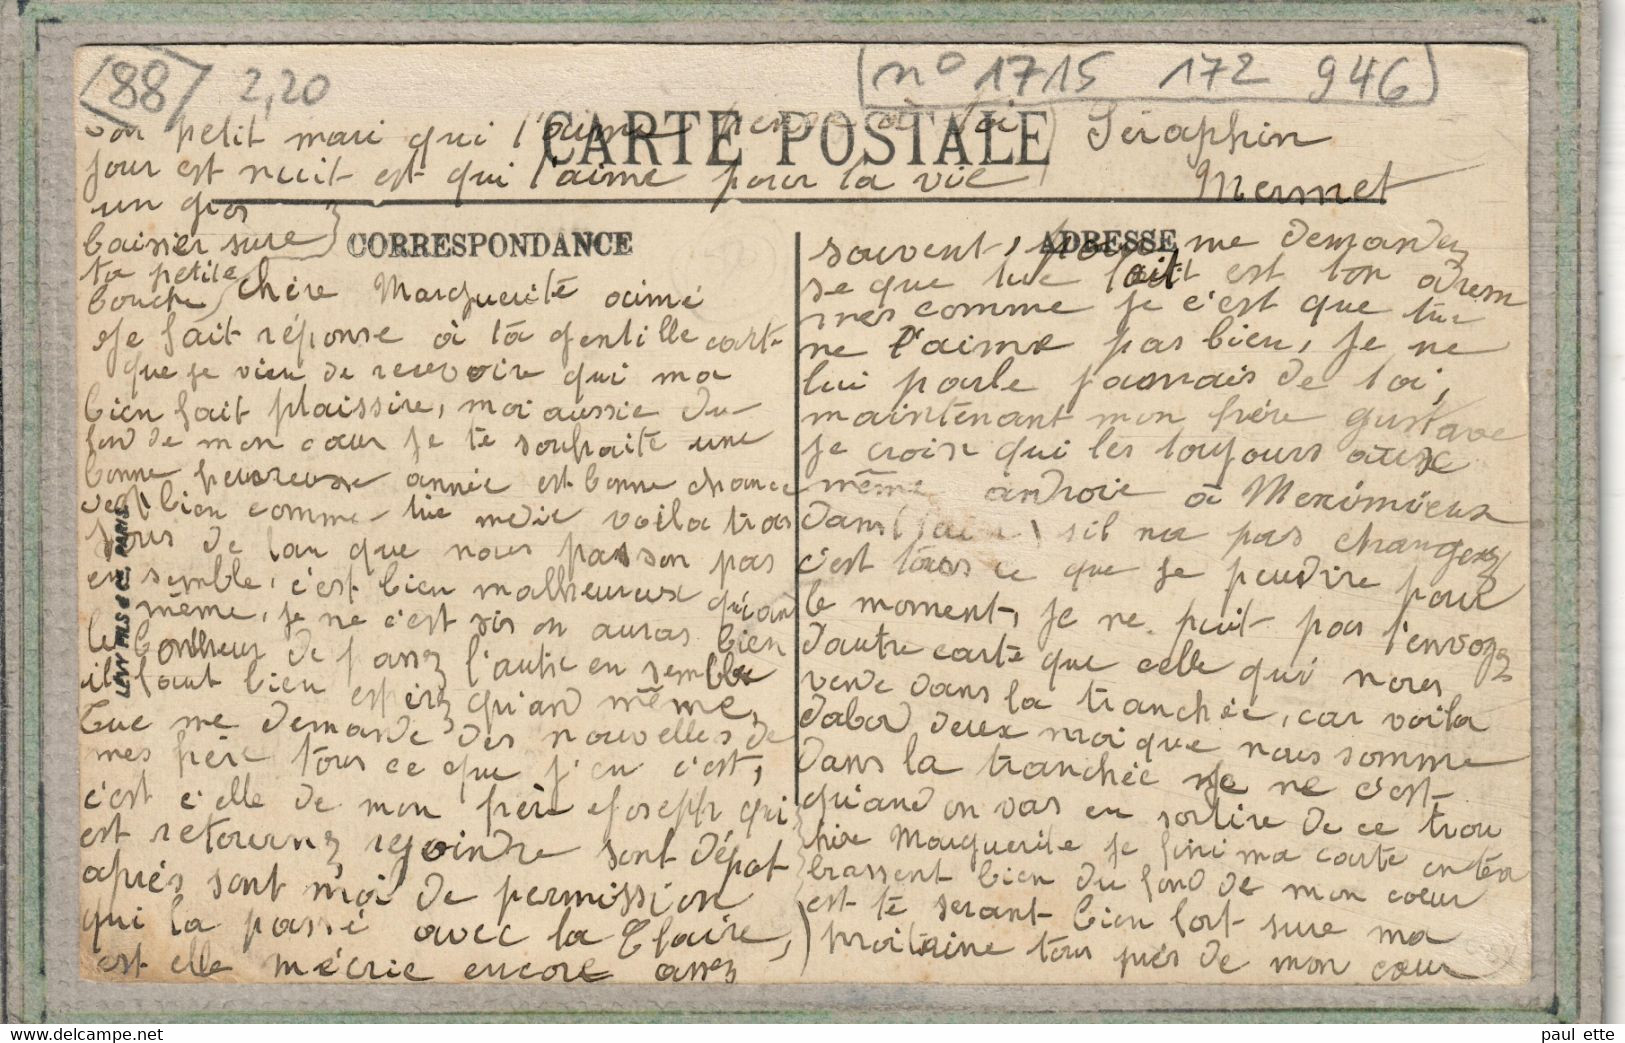 88 2,20
n° 1715 172 946
CARTE POSTALE
ton petit mari qui t'aime pense à toi
jour est nuit est qui t'aime pour la vie
Séraphin
Mermet
un gros
baisier sure
ta petite
bouche
CORRESPONDANCE
Chère Marguerite aimé
Je fait réponse à ta gentille carte
que je vien de recevoire qui ma
bien fait plaissire, moi aussie du
fond de mon cœur je te souhaite une
bonne heureuse année est bonne chance
c'est bien comme tue me dit voila trois
jours de lan que nous passon pas
en semble, c'est bien malheureux qu'and
même, je ne c'est sis on auras bien
le bonheur de passez l'autre en semble
il faut bien espérez qu'and même,
Tue me demande des nouvelles de
mes père tous ce que j'en c'est,
c'est c'elle de mon frère Joseph qui
est retournez rejoindre sont dépot
après sont moi de permission
qui la passé avec la Claire,
c'est elle m'écrie encore assez
LEVY FILS & Cie PARIS
ADRESSE
souvent, pour me demandez
se que tue fait est ton adresse
mes comme je c'est que tue
ne l'aime pas bien, je ne
lui parle jamais de toi,
maintenant mon frère Gustave
je croix qui les toujours aux
même androie à Meximieux
dans l'ain sil na pas changez
c'est tous ce que je peudire pour
le moment, je ne puit pas t'envoyez
d'autre carte que celle qui nous
vende dans la tranchée, car voila
dabord deux moi que nous somme
dans la tranchée je ne c'est
quand on vas en sortire de ce trou
chère Marguerite je fini ma carte en tem
brassent bien du fond de mon cœur
est te serant bien fort sure ma
poitrine tous près de mon cœur
paul ette